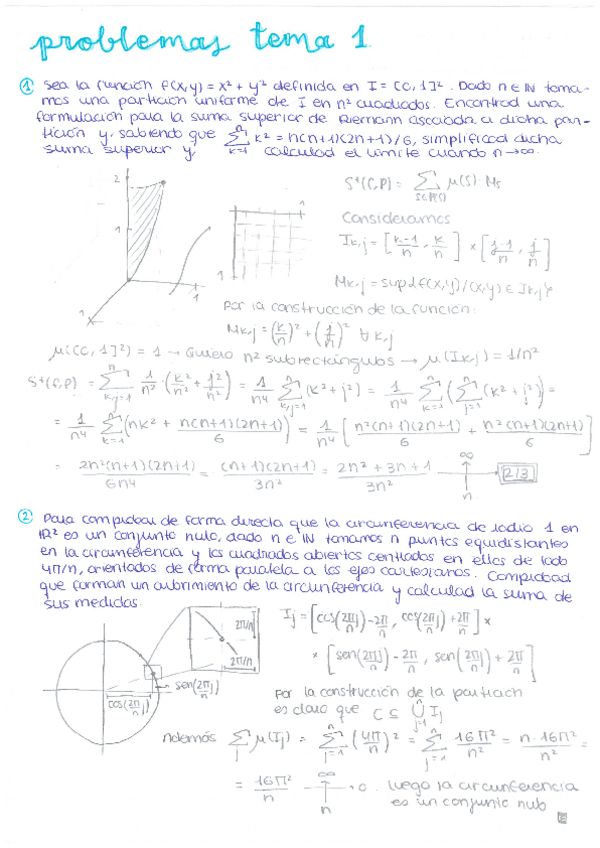 problemas tema 1
① Sea la función f(x,y) = x² + y² definida en I = [0,1]². Dado n ∈ ℕ toma-
mos una partición uniforme de I en n² cuadrados. Encontrad una
formulación para la suma superior de Riemann asociada a dicha par-
tición y, sabiendo que ∑_{k=1}^{n} k² = n(n+1)(2n+1)/6, simplificad dicha
suma superior y calculad el límite cuando n→∞.
S⁺(f,P) = ∑_{S∈P(S)} μ(S)· M_S
Consideramos
I_{k,j} = [k-1/n , k/n] × [j-1/n , j/n]
M_{k,j} = sup{f(x,y)/(x,y) ∈ I_{k,j}}
2
1
1
1
1
1
Por la construcción de la función:
M_{k,j} = (k/n)² + (j/n)² ∀ k,j
μ([0,1]²) = 1 → Quiero n² subrectángulos → μ(I_{k,j}) = 1/n²
S⁺(f,P) = ∑_{k,j=1}^{n} 1/n² · (k²/n² + j²/n²) = 1/n⁴ ∑_{k,j=1}^{n} (k² + j²) = 1/n⁴ ∑_{k=1}^{n} (∑_{j=1}^{n} (k² + j²)) =
= 1/n⁴ ∑_{k=1}^{n} (nk² + n(n+1)(2n+1)/6) = 1/n⁴ [n²(n+1)(2n+1)/6 + n²(n+1)(2n+1)/6]
= 2n²(n+1)(2n+1)/6n⁴ = (n+1)(2n+1)/3n² = 2n² + 3n + 1/3n² → n ↑ ∞ 2/3
② Para comprobar de forma directa que la circunferencia de radio 1 en
ℝ² es un conjunto nulo, dado n ∈ ℕ tomamos n puntos equidistantes
en la circunferencia y los cuadrados abiertos centrados en ellos de lado
4π/n, orientados de forma paralela a los ejes cartesianos. Comprobad
que forman un cubrimiento de la circunferencia y calculad la suma de
sus medidas.
2π/n
2π/n
sen(2πj/n)
cos(2πj/n)
I_j = [cos(2πj/n) - 2π/n , cos(2πj/n) + 2π/n] ×
× [sen(2πj/n) - 2π/n , sen(2πj/n) + 2π/n]
Por la construcción de la partición
es claro que C ⊆ ⋃_{j=1}^{n} I_j
Además ∑_j μ(I_j) = ∑_{j=1}^{n} (4π/n)² = ∑_{j=1}^{n} 16π²/n² = n·16π²/n² =
= 16π²/n → n ↑ ∞ 0. Luego la circunferencia
es un conjunto nulo